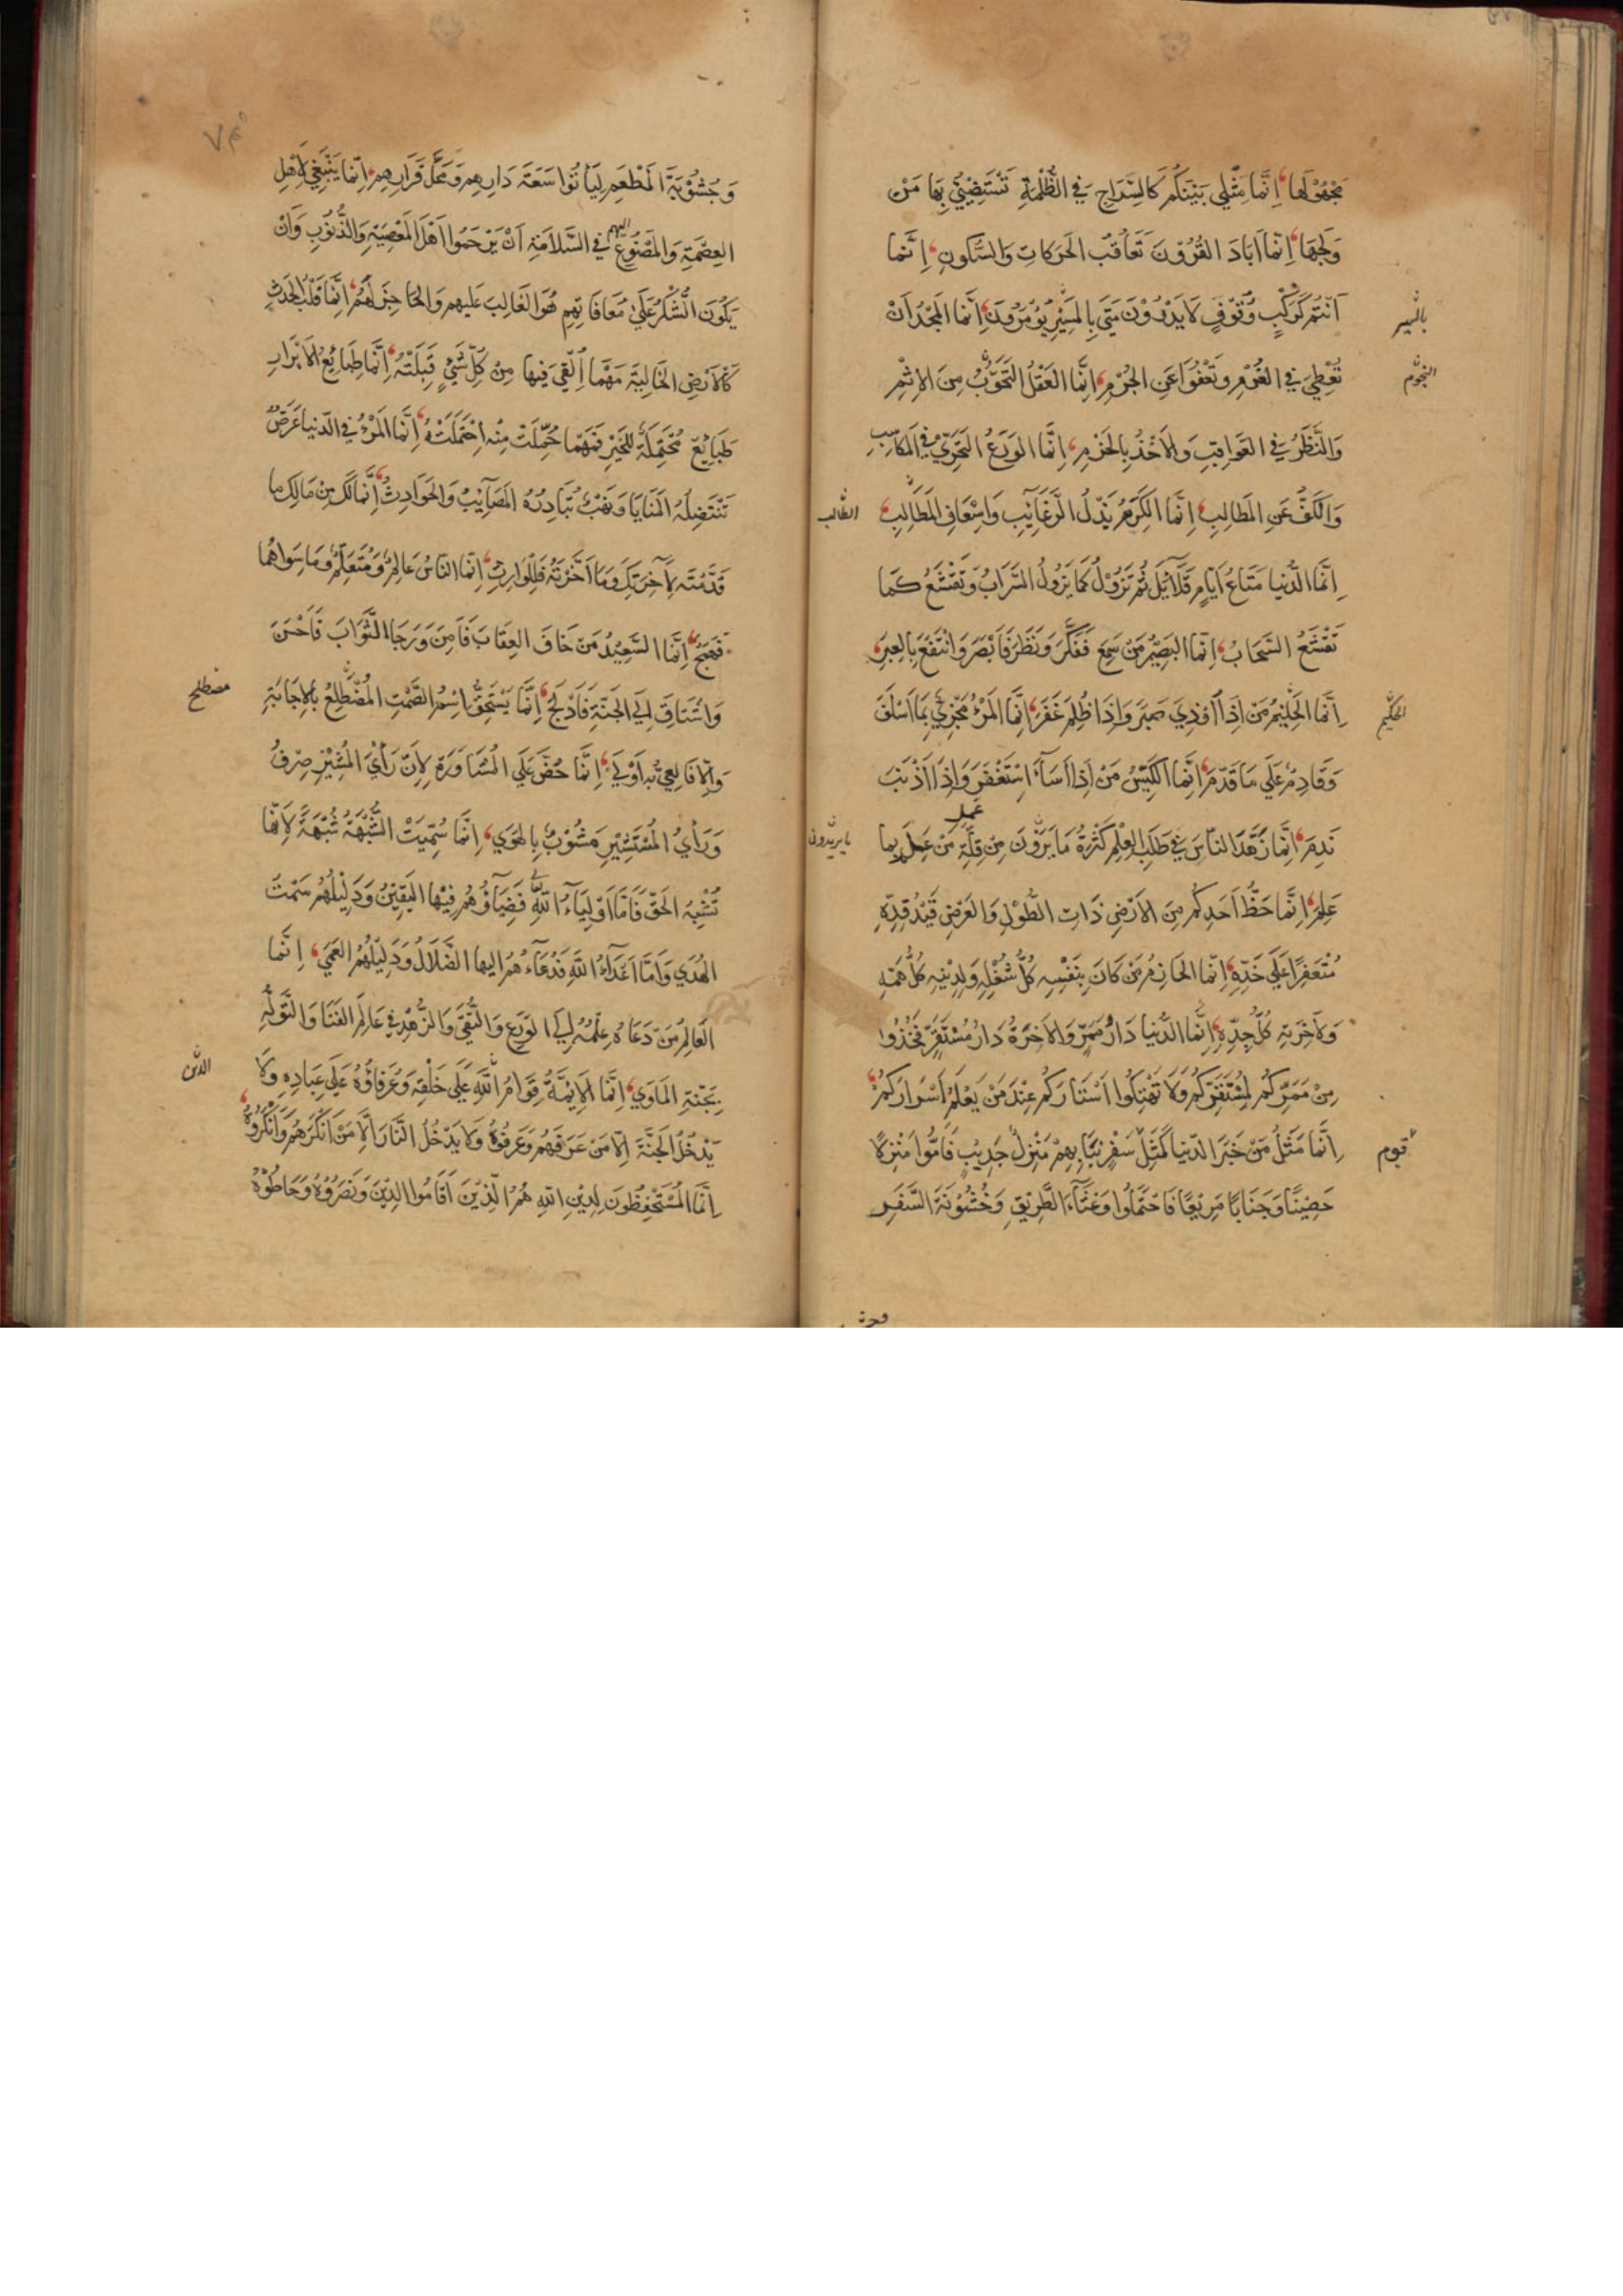 مَجْهُوْلَهَا، اِنَّمَا مَثَلِي بَيْنَكُمْ كَالسِّرَاجِ فِي الظُّلْمَةِ تَسْتَضِيْئُ بِهَا مَنْ
وَلَجَهَا، اِنَّمَا اَبَادَ القُرُوْنَ تَعَاقُبُ الحَرَكَاتِ وَالسُّكُونِ، اِنَّمَا
اَنْتُمْ كَرَكْبٍ وُقُوْفٍ لَا يَدْرُوْنَ مَتَى بِالمَسِيْرِ يُؤْمَرُوْنَ، اِنَّمَا المَجْدُ اَنْ
بالسير
تُعْطِيَ فِي الغُرْمِ وَتَعْفُوَا عَنِ الجُرْمِ، اِنَّمَا العَقْلُ التَّحَوُّبُ مِنَ الاِثْمِ
وَالنَّظَرُ فِي العَوَاقِبِ وَالاَخْذُ بِالحَزْمِ، اِنَّمَا الوَرَعُ التَّحَرِّي فِي المَكَاسِبِ
وَالكَفُّ عَنِ المَطَالِبِ، اِنَّمَا الكَرَمُ بَذْلُ الرَّغَائِبِ وَاِسْعَافُ المَطَالِبِ،
الطالب
اِنَّمَا الدُّنْيَا مَتَاعُ اَيَّامٍ قَلَآئِلَ ثُمَّ تَزُوْلُ كَمَا يَزُولُ السَّرَابُ وَتَقْشَعُ كَمَا
تَقْشَعُ السَّحَابُ، اِنَّمَا البَصِيْرُ مَنْ سَمِعَ فَفَكَّرَ وَنَظَرَ فَاَبْصَرَ وَانْتَفَعَ بِالعِبَرِ،
اِنَّمَا الحَلِيْمُ مَنْ اِذَا اُوْذِيَ صَبَرَ وَاِذَا ظُلِمَ غَفَرَ، اِنَّمَا المَرْءُ مَجْزِيٌّ بِمَا اَسْلَفَ
الحكيم
وَقَادِمٌ عَلَى مَا قَدَّمَ، اِنَّمَا الكَيِّسُ مَنْ اِذَا اَسَآءَ اِسْتَغْفَرَ وَاِذَا اَذْنَبَ
نَدِمَ، اِنَّمَا زَهَّدَ النَّاسَ فِي طَلَبِ العِلْمِ كَثْرَةُ مَا يَرَوْنَ مِنْ قِلَّةِ مَنْ عَمِلَ بِمَا
عمل
ما يريدون
عَلِمَ، اِنَّمَا حَظُّ اَحَدِكُمْ مِنَ الاَرْضِ ذَاتِ الطُّوْلِ وَالعَرْضِ قَيْدُ قَدِّهِ
مُتَعَفِّرًا عَلَى خَدِّهِ، اِنَّمَا الحَازِمُ مَنْ كَانَ بِنَفْسِهِ كُلُّ شُغْلِهِ وَلِدِيْنِهِ كُلُّ هَمِّهِ
وَلاٰخِرَتِهِ كُلُّ جِدِّهِ، اِنَّمَا الدُّنْيَا دَارُ مَمَرٍّ وَالاٰخِرَةُ دَارُ مُسْتَقَرٍّ فَخُذُوا
مِنْ مَمَرِّكُمْ لِمُسْتَقَرِّكُمْ وَلَا تَهْتِكُوا اَسْتَارَكُمْ عِنْدَ مَنْ يَعْلَمُ اَسْرَارَكُمْ،
اِنَّمَا مَثَلُ مَنْ خَبَرَ الدُّنْيَا كَمَثَلِ سَفْرٍ نَبَا بِهِمْ مَنْزِلٌ جَدِيْبٌ فَاَمُّوا مَنْزِلًا
قوم
حَصِيْنًا وَجَنَابًا مَرِيْعًا فَاحْتَمَلُوا وَعْثَآءَ الطَّرِيْقِ وَخُشُوْنَةَ السَّفَرِ
وَجُشُوْبَةَ المَطْعَمِ لِيَأْتُوا سَعَةَ دَارِهِمْ وَمَحَلَّ قَرَارِهِمْ، اِنَّمَا يَنْبَغِي لِاَهْلِ
العِصْمَةِ وَالمَصْنُوْعِ فِي السَّلَامَةِ اَنْ يَرْحَمُوا اَهْلَ المَعْصِيَةِ وَالذُّنُوْبِ وَاَنْ
اليهم
يَكُوْنَ الشُّكْرُ عَلَى مُعَافَاتِهِمْ هُوَ الغَالِبَ عَلَيْهِمْ وَالحَاجِزَ لَهُمْ، اِنَّمَا قَلْبُ الحَدَثِ
كَالاَرْضِ الخَالِيَةِ مَهْمَا اُلْقِيَ فِيْهَا مِنْ كُلِّ شَيْءٍ قَبِلَتْهُ، اِنَّمَا طَبَائِعُ الاَبْرَارِ
طَبَائِعُ مُحْتَمِلَةٌ لِلْخَيْرِ فَمَهْمَا حُمِّلَتْ مِنْهُ اِحْتَمَلَتْهُ، اِنَّمَا المَرْءُ فِي الدُّنْيَا غَرَضٌ
تَنْتَضِلُهُ المَنَايَا وَنَهْبٌ تُبَادِرُهُ المَصَآئِبُ وَالحَوَادِثُ، اِنَّمَا لَكَ مِنْ مَالِكَ مَا
قَدَّمْتَهُ لِآخِرَتِكَ وَمَا اَخَّرْتَهُ فَلِلْوَارِثِ، اِنَّمَا النَّاسُ عَالِمٌ وَمُتَعَلِّمٌ وَمَا سِوَاهُمَا
فَهَمَجٌ، اِنَّمَا السَّعِيْدُ مَنْ خَافَ العِقَابَ فَاٰمِنَ وَرَجَا الثَّوَابَ فَاَحْسَنَ
وَاشْتَاقَ اِلَى الجَنَّةِ فَاَدْلَجَ، اِنَّمَا يَسْتَحِقُّ اِسْمَ الصَّمْتِ المُضْطَلِعُ بِالاِجَابَةِ
مضطلع
وَاِلَّا فَالعِيُّ بِهِ اَوْلَى، اِنَّمَا حُضَّ عَلَى المُشَاوَرَةِ لِاَنَّ رَأْيَ المُشِيْرِ صِرْفٌ
وَرَأْيُ المُسْتَشِيْرِ مَشُوْبٌ بِالهَوَى، اِنَّمَا سُمِّيَتْ الشُّبْهَةُ شُبْهَةً لِاَنَّهَا
تُشْبِهُ الحَقَّ فَاَمَّا اَوْلِيَآءُ اللّٰهِ فَضِيَآؤُهُمْ فِيْهَا اليَقِيْنُ وَدَلِيْلُهُمْ سَمْتُ
الهُدَى وَاَمَّا اَعْدَآءُ اللّٰهِ فَدُعَآءُهُمْ اِلَيْهَا الضَّلَالُ وَدَلِيْلُهُمُ العَمَى، اِنَّمَا
العَالِمُ مَنْ دَعَاهُ عِلْمُهُ اِلَى الوَرَعِ وَالتُّقَى وَالزُّهْدِ فِي عَالَمِ الفَنَا وَالتَّوَلُّهِ
بِجَنَّةِ المَأْوَى، اِنَّمَا الاَئِمَّةُ قِوَامُ اللّٰهِ عَلَى خَلْقِهِ وَعُرَفَاؤُهُ عَلَى عِبَادِهِ وَلَا
يَدْخُلُ الجَنَّةَ اِلَّا مَنْ عَرَفَهُمْ وَعَرَفُوْهُ وَلَا يَدْخُلُ النَّارَ اِلَّا مَنْ اَنْكَرَهُمْ وَاَنْكَرُوْهُ،
اِنَّمَا المُسْتَحْفِظُوْنَ لِدِيْنِ اللّٰهِ هُمُ الَّذِيْنَ اَقَامُوا الدِّيْنَ وَنَصَرُوْهُ وَحَاطُوْهُ